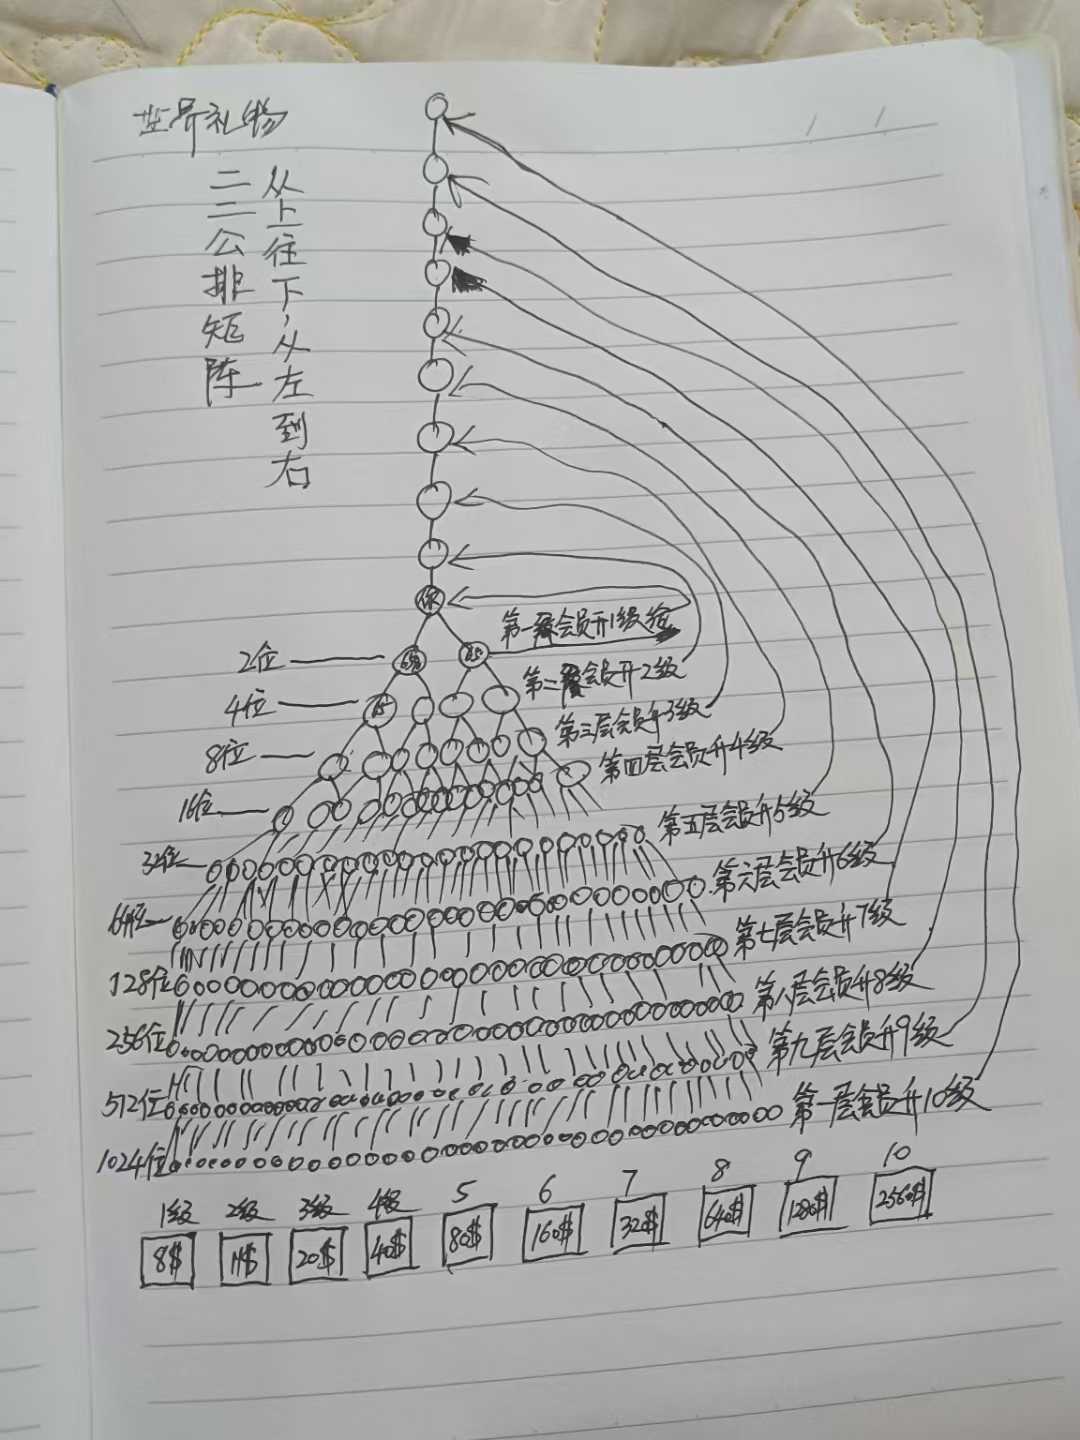 世界礼物
从上往下,从左到右
二二公排矩阵
你
第一层会员升1级给
2位
第二层会员升2级
4位
第三层会员升3级
8位
第四层会员升4级
16位
第五层会员升5级
32位
第六层会员升6级
64位
第七层会员升7级
128位
第八层会员升8级
256位
第九层会员升9级
512位
第一层会员升10级
1024位
1级 2级 3级 4级 5 6 7 8 9 10
8$ 11$ 20$ 40$ 80$ 160$ 320$ 640$ 1280$ 2560$